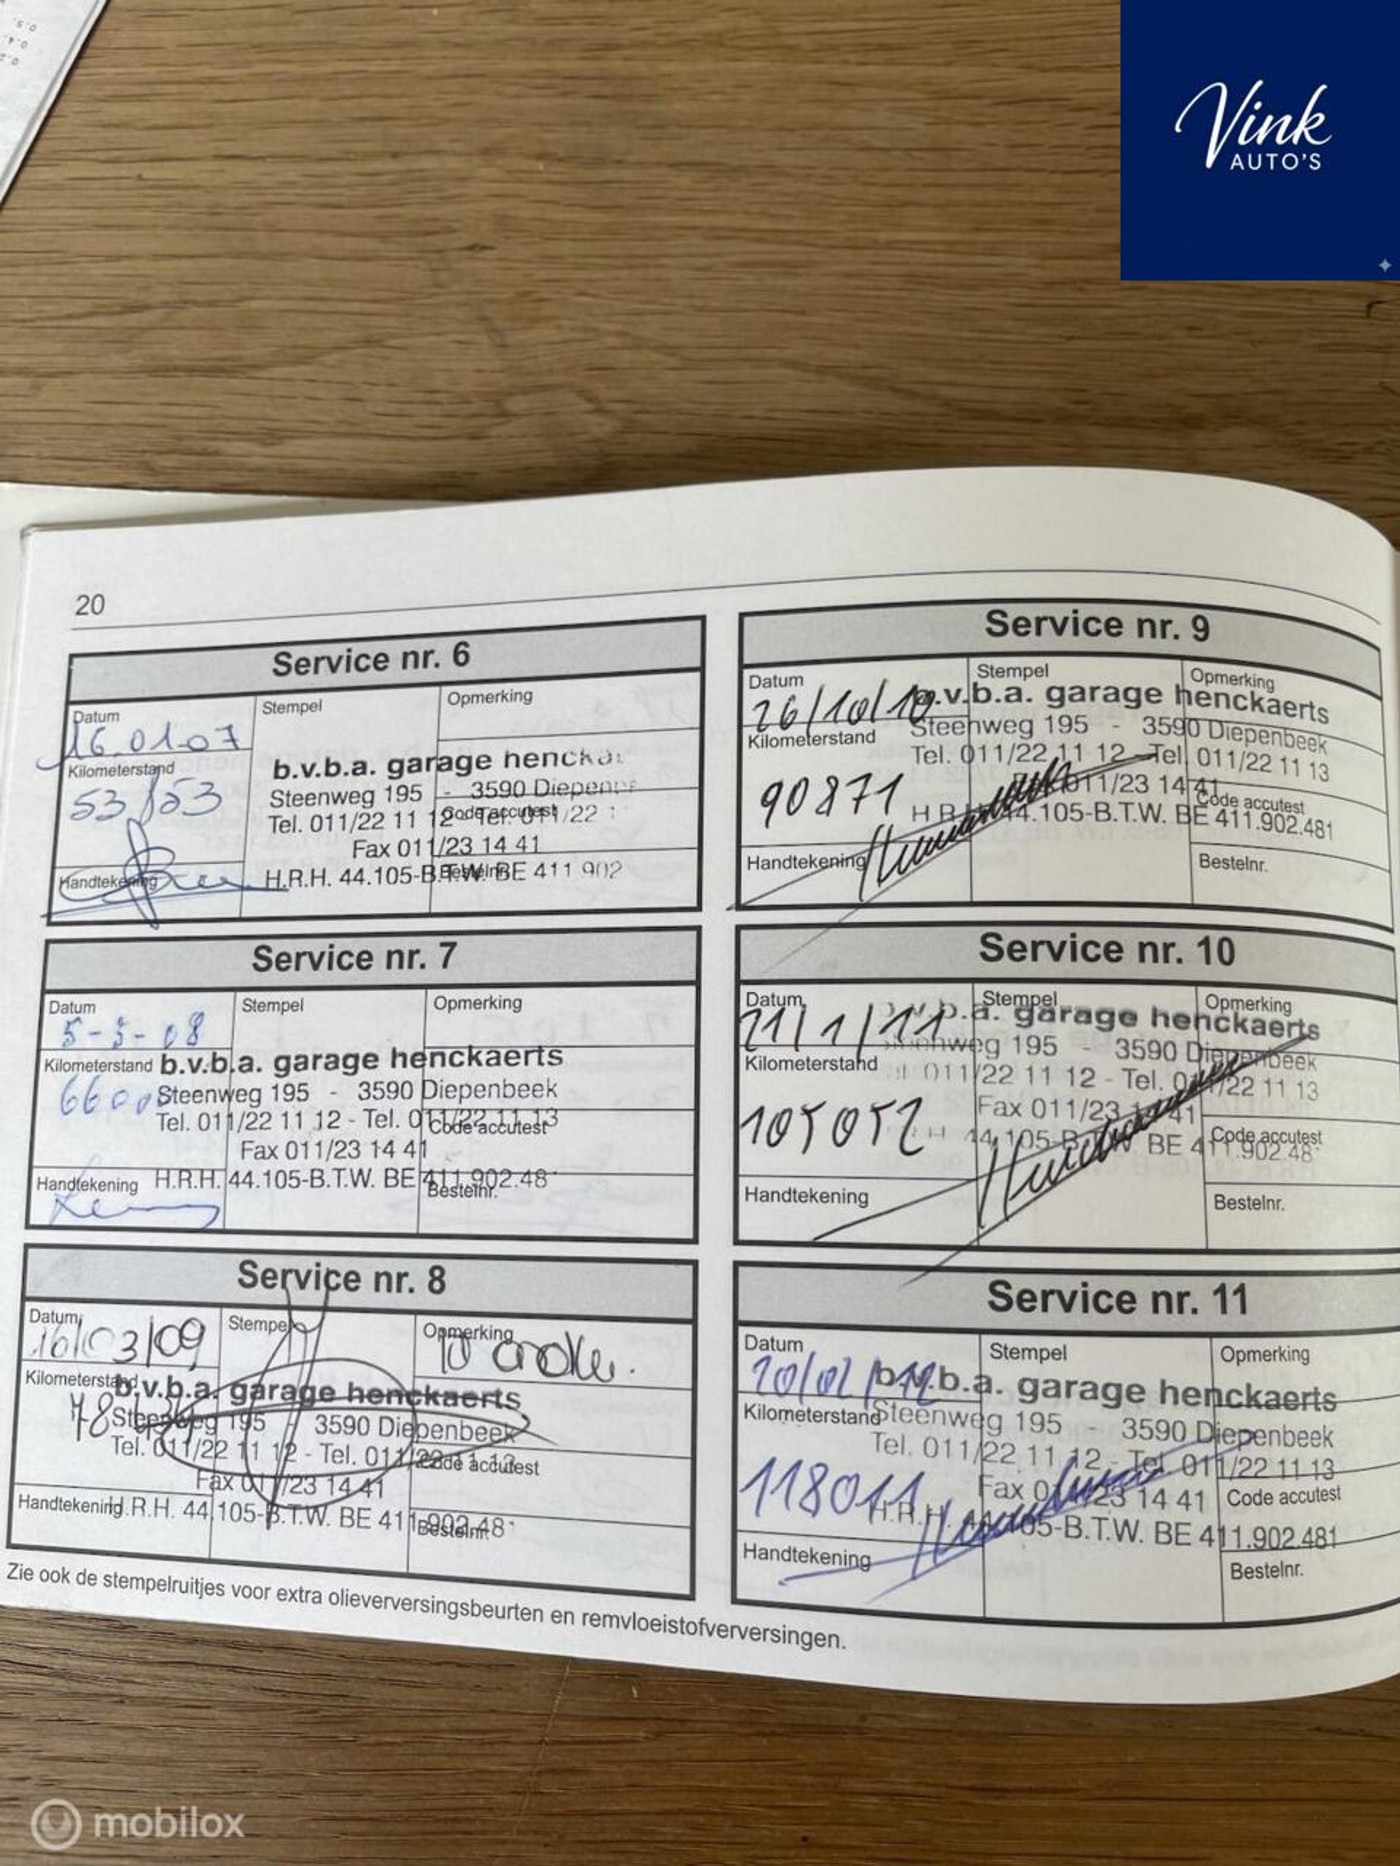 Vink
AUTO'S
20
Service nr. 6
Datum
Stempel
Opmerking
16.01.07
Kilometerstand
b.v.b.a. garage hencka
Steenweg 195 - 3590 Diepen
Tel. 011/22 11 12 - Tel. 011/22
Code accutest
Fax 011/23 14 41
Handtekening
H.R.H. 44.105-B.T.W. BE 411 902
Bestelnr.
Service nr. 7
Datum
Stempel
Opmerking
5-3-08
Kilometerstand
b.v.b.a. garage henckaerts
Steenweg 195 - 3590 Diepenbeek
Tel. 011/22 11 12 - Tel. 011/22 11 13
Code accutest
Fax 011/23 14 41
Handtekening
H.R.H. 44.105-B.T.W. BE 411.902.48
Bestelnr.
Service nr. 8
Datum
Stempel
Opmerking
16/03/09
Kilometerstand
b.v.b.a. garage henckaerts
Steenweg 195 3590 Diepenbeek
Tel. 011/22 11 12 - Tel. 011/22 11 13
Code accutest
Fax 011/23 14 41
Handtekening
H.R.H. 44.105-B.T.W. BE 411.902.48
Bestelnr.
Zie ook de stempelruitjes voor extra olieverversingsbeurten en remvloeistofverversingen.
Service nr. 9
Datum
Stempel
Opmerking
26/10/10
b.v.b.a. garage henckaerts
Kilometerstand
Steenweg 195 - 3590 Diepenbeek
Tel. 011/22 11 12 - Tel. 011/22 11 13
90871
011/23 14 41
Code accutest
44.105-B.T.W. BE 411.902.481
Handtekening
Bestelnr.
Service nr. 10
Datum
Stempel
Opmerking
21/1/11
garage henckaerts
Kilometerstand
195 - 3590 Diepenbeek
011/22 11 12 - Tel. 011/22 11 13
105052
Fax 011/23 14 41
Code accutest
44.105-B.T.W. BE 411.902.48
Handtekening
Bestelnr.
Service nr. 11
Datum
Stempel
Opmerking
20/02/12
b.v.b.a. garage henckaerts
Kilometerstand
Steenweg 195 3590 Diepenbeek
Tel. 011/22 11 12 - Tel. 011/22 11 13
118011
Fax 011/23 14 41
Code accutest
H.R.H. 44.105-B.T.W. BE 411.902.481
Handtekening
Bestelnr.
mobilox